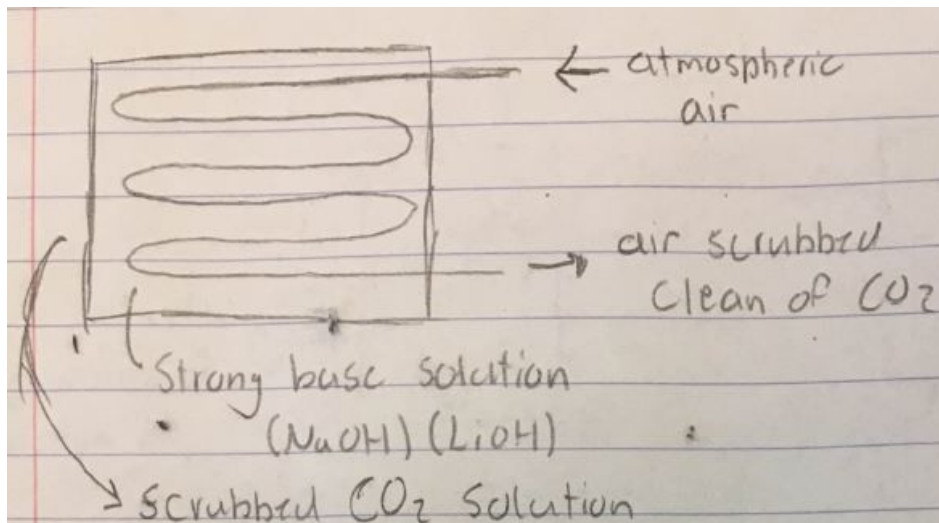 ← atmospheric
air
→ air scrubbed
clean of CO2
Strong base solution
(NaOH) (LiOH)
scrubbed CO2 solution